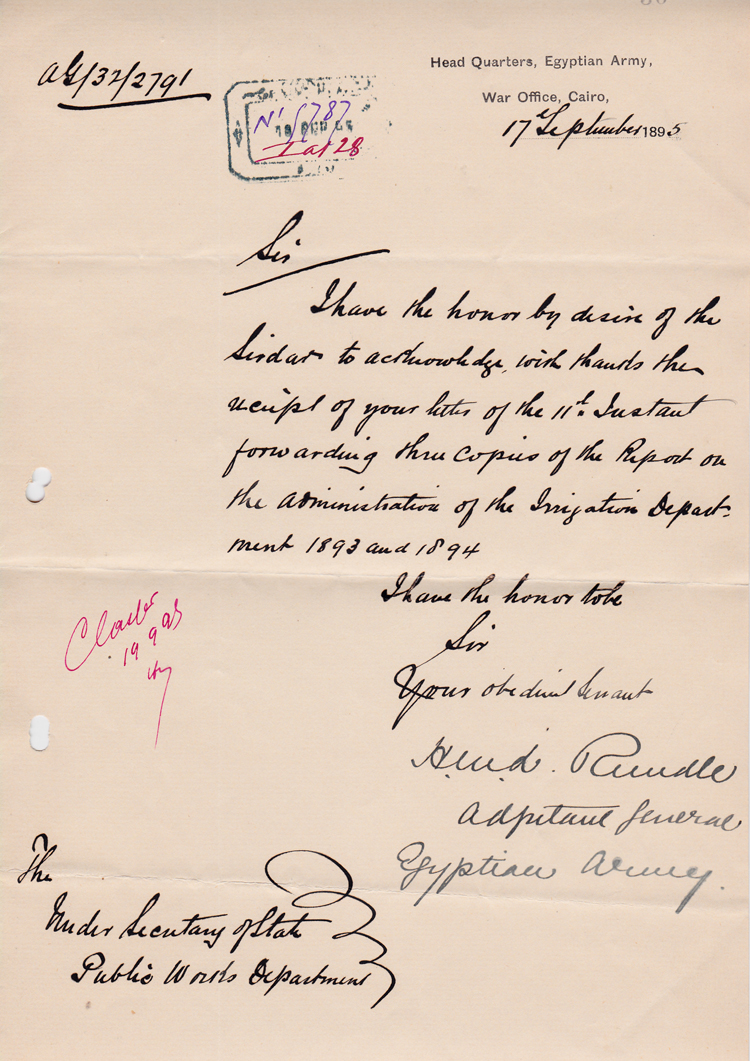 AG/32/2791
Head Quarters, Egyptian Army,
War Office, Cairo,
17th September 1895
No 5787
Sir
I have the honor by desire of the
Sirdar to acknowledge, with thanks the
receipt of your letter of the 11th Instant
forwarding three copies of the Report on
the administration of the Irrigation Depart-
ment 1893 and 1894
I have the honor to be
Sir
Your obedient Servant
Rundle
Adjutant General
Egyptian Army.
19 9 95
The
Under Secretary of State
Public Works Department